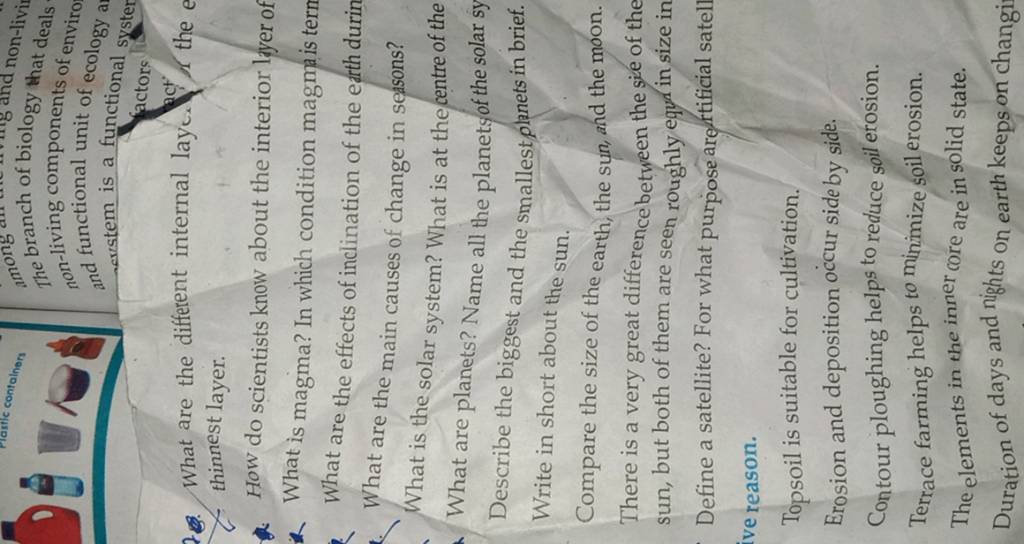 among
and non-livin
The branch of biology that deals
non-living components of environ
and functional unit of ecology an
system is a functional system
factors
Plastic containers
What are the different internal
the e
thinnest layer.
How do scientists know about the interior layer of
What is magma? In which condition magma is term
What are the effects of inclination of the earth durin
What are the main causes of change in seasons?
What is the solar system? What is at the centre of the
What are planets? Name all the planets of the solar sy
Describe the biggest and the smallest planets in brief.
Write in short about the sun.
Compare the size of the earth, the sun, and the moon.
There is a very great difference between the size of the
sun, but both of them are seen roughly equal in size in
Define a satellite? For what purpose are artificial satell
ive reason.
Topsoil is suitable for cultivation.
Erosion and deposition occur side by side.
Contour ploughing helps to reduce soil erosion.
Terrace farming helps to minimize soil erosion.
The elements in the inner core are in solid state.
Duration of days and nights on earth keeps on changin